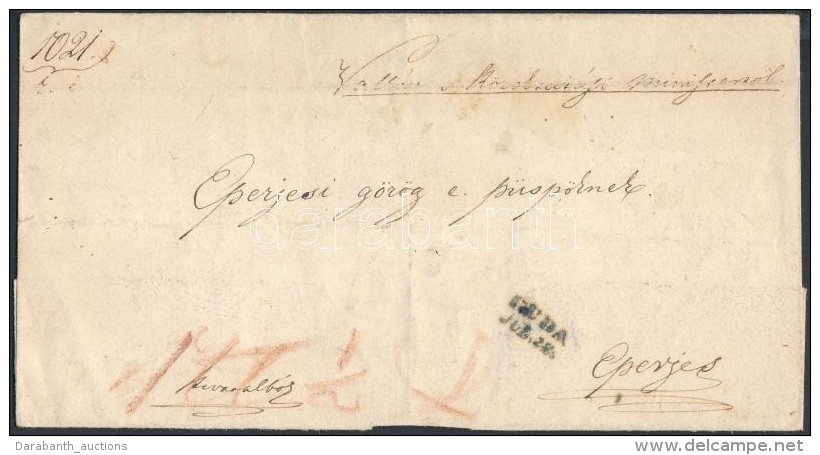 1021.
Vallás s Közoktatási ministertől
Eperjesi görög e. püspöknek.
darabanth
BUDA
JUL. 28.
Eperjes
Hivatalból
Darabanth_auctions
http://www.delcampe.net